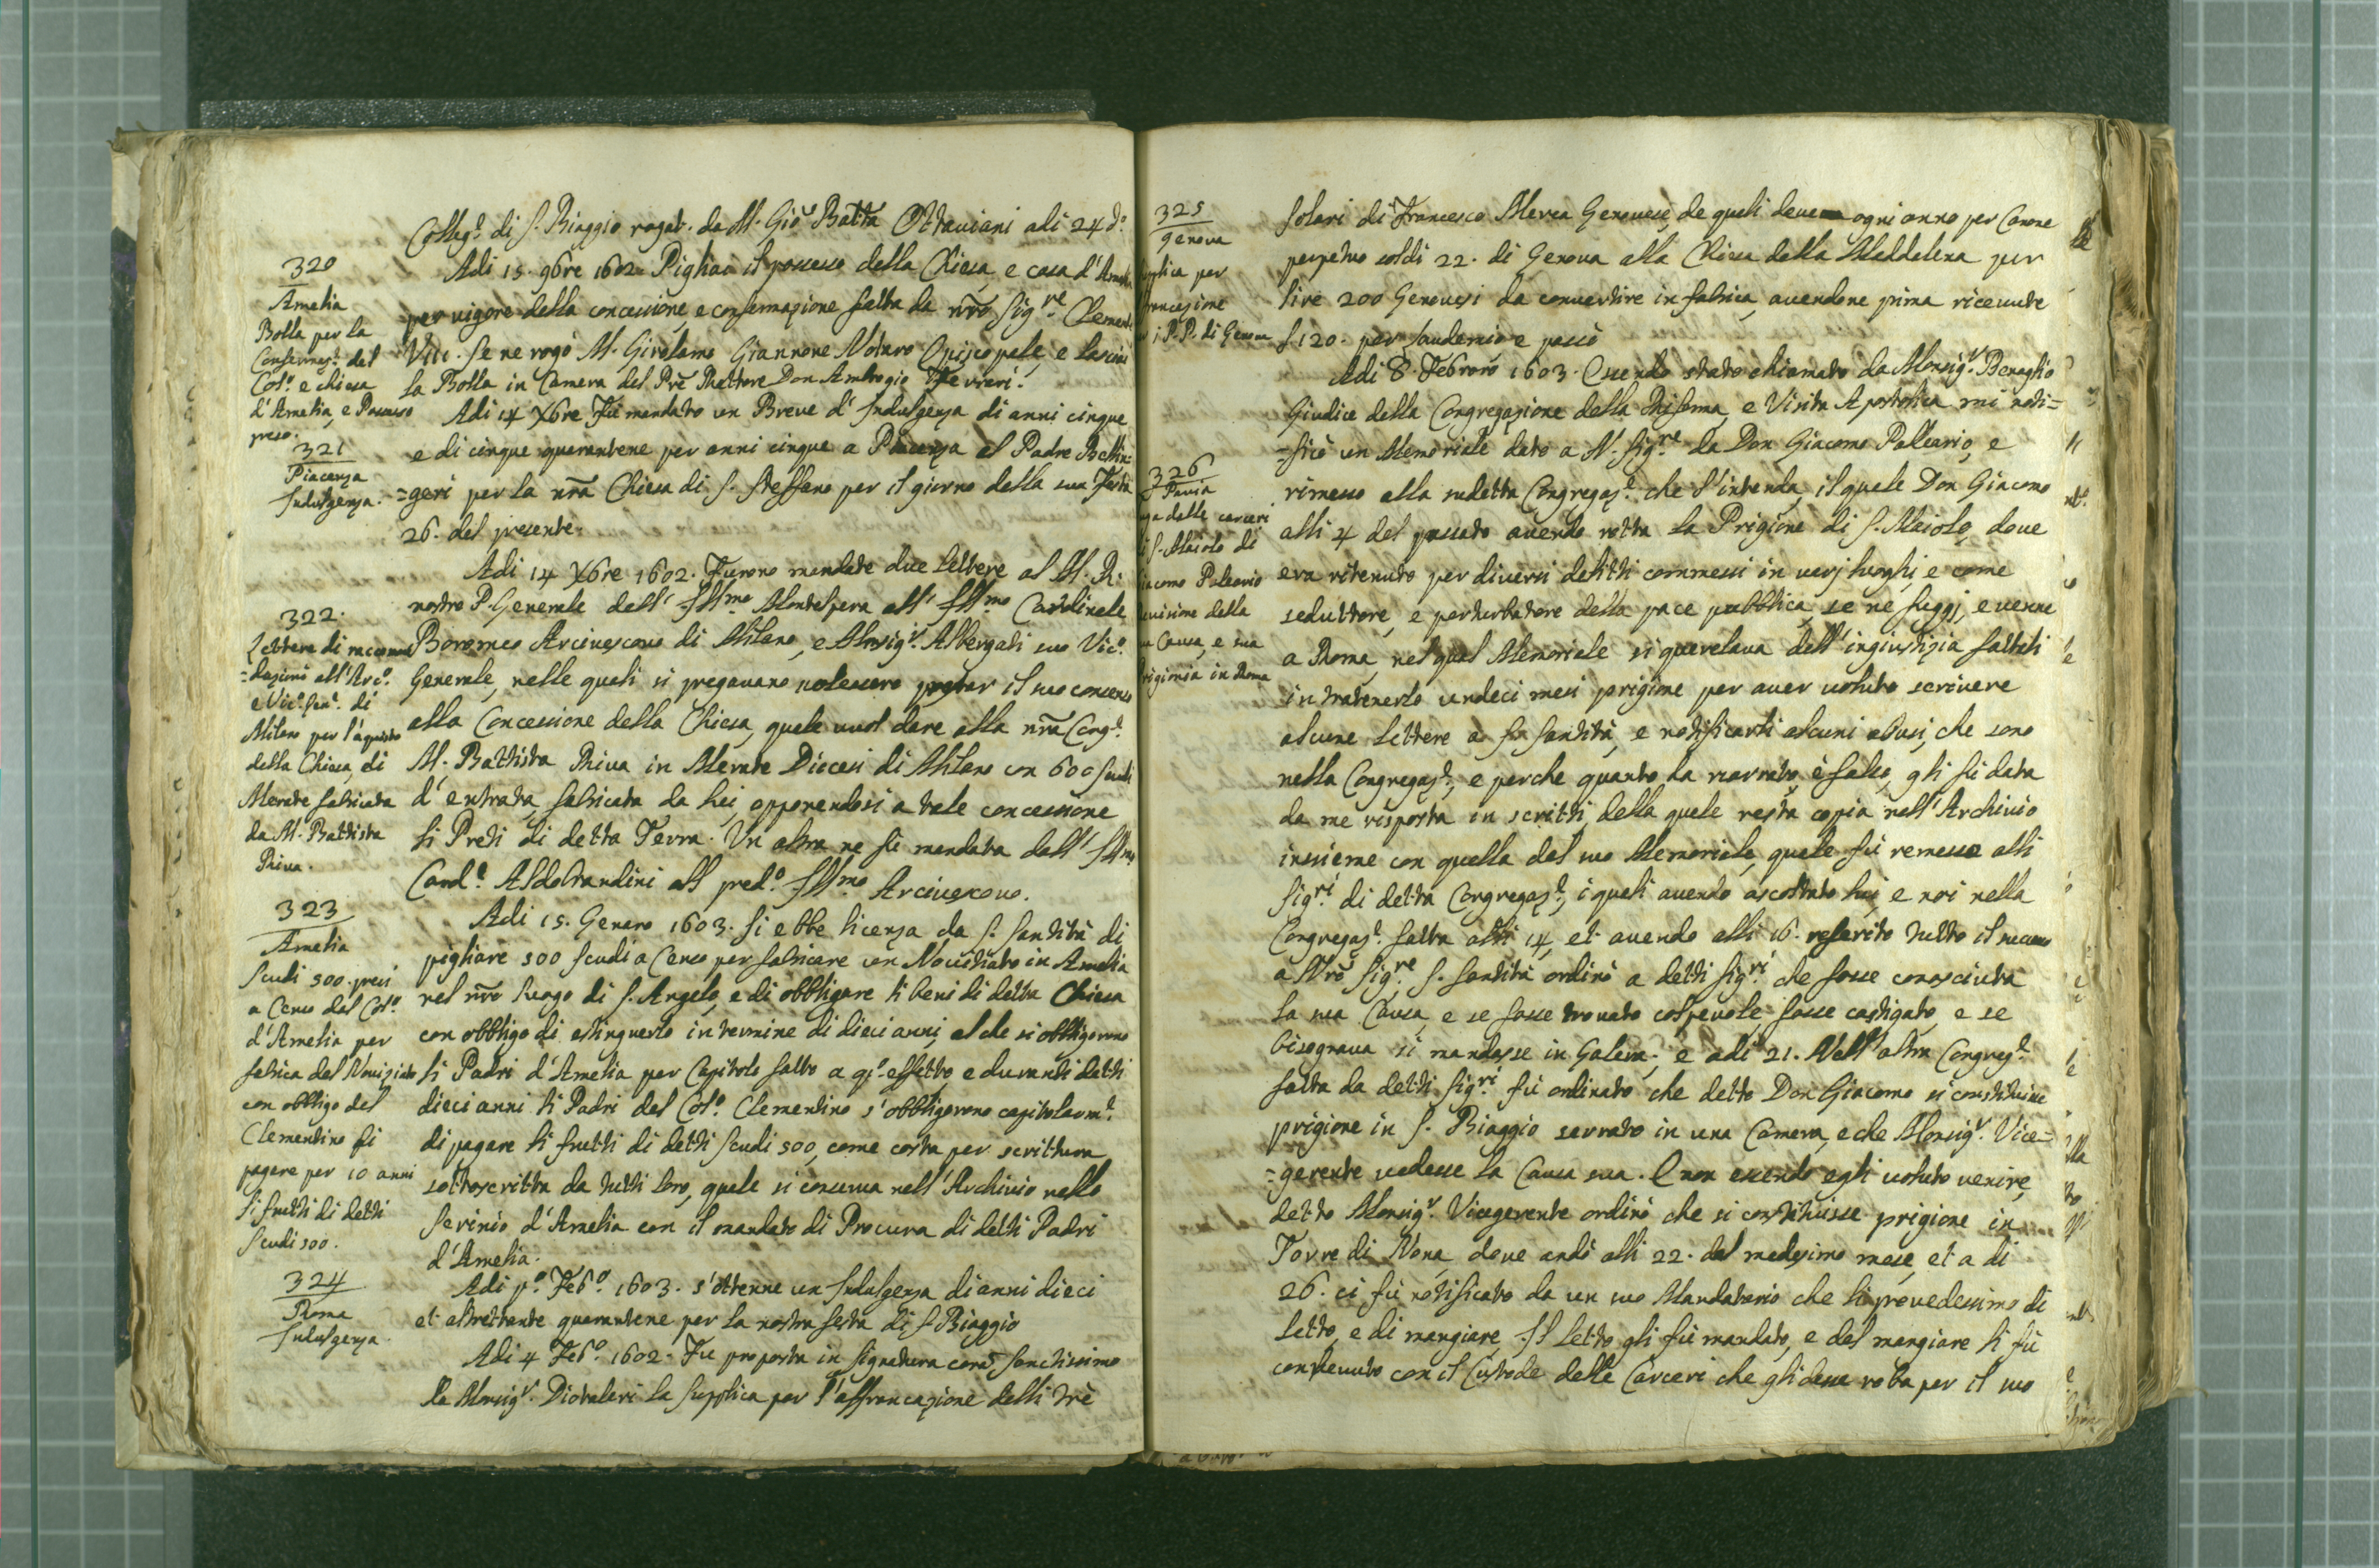 Colleg.º di S. Biaggio rogat. da M. Gio Batta Ottaviani adi 24 d.º
320
Amelia
Bolla per la
Confermaz.e del
Col.º e chiesa
d'Amelia, e Possesso
preso.
Adi 15. 9bre 1602. Pigliai il possesso della Chiesa, e casa d'Amelia
per vigore della concessione, e confermazione fatta da nrõ Sig.re Clemente
VIII. Se ne rogò M. Girolamo Giannone Notaro Episcopale, e lasciai
la Bolla in Camera del Prẽ Rettore Don Ambrogio Ferrieri.
321
Piacenza
Indulgenza.
Adi 14 Xbre Fù mandato un Breve d'Indulgenza di anni cinque
e di cinque quarantene per anni cinque a Piacenza al Padre Bellin=
=geri per la nrã Chiesa di S. Steffano per il giorno della sua Festa
26. del presente.
322.
Lettere di raccoman
=dazioni all'Arc.º
e Vic.º Gen.e di
Milano per l'aquisto
della Chiesa, di
Merate fabricata
da M. Battista
Riva.
Adi 14 Xbre 1602. Furono mandate due lettere al M. R.
nostro P. Generale dell' Ill.mo Montalpera all' Ill.mo Cardinale
Boromeo Arcivescovo di Milano, e Monsig.r Albergati suo Vic.º
Generale, nelle quali si pregavano volessero prestar il suo consenso
alla Concessione della Chiesa, quale vuol dare alla nrã Cong.e
M. Battista Riva in Merate Diocesi di Milano con 600 scudi
d'entrata, fabricata da lei, opponendosi a tale concessione
li Preti di detta Terra. Un altra ne fù mandata dall' Ill.mo
Card.e Aldobrandini all pred.º Ill.mo Arcivescovo.
323
Amelia
Scudi 500. presi
a Censo dal Col.º
d'Amelia per
fabrica del Noviziato
con obbligo del
Clementino di
pagare per 10 anni
li frutti di detti
Scudi 500.
Adi 15. Genaro 1603. Si ebbe licenza da S. Santità di
pigliare 500 scudi a Censo per fabricare un Novitiato in Amelia
nel nrõ luogo di S. Angelo, e di obbligare li beni di detta Chiesa
con obbligo di estinguerlo in termine di dieci anni, al che si obbligorono
li Padri d'Amelia per Capitolo fatto a q.º effetto, e duranti detti
dieci anni li Padri del Col.º Clementino s'obbligorono capitolarm.e
di pagare li frutti di detti Scudi 500, come costa per scrittura
sottoscritta da tutti loro, quale si conserva nell'Archivio nello
Scrinio d'Amelia con il mandato di Procura di detti Padri
d'Amelia.
324
Roma
Indulgenza.
Adi p.º Feb.º 1603. s'ottenne un Indulgenza di anni dieci
et altrettante quarantene per la nostra festa di S. Biaggio
Adi 4 Feb.º 1602. Fu proposta in Signatura corã Sanctissimo
da Monsig.r Diotaleri la Supplica per l'affrancazione delli trè
325
Genova
pplica per
francazione
i P.P. di Genova
solari di Francesco Merea Genovese, de quali deve ogni anno per Canone
perpetuo soldi 22. di Genova alla Chiesa della Maddalena per
lire 200 Genovesi da convertire in fabrica, avendone prima ricevute
£ 120. per laudemio e passò
326
Pavia
ga dalle carceri
i S. Maiolo di
iacomo Paleario
evisione della
a Causa, e sua
rigionia in Roma
Adi 8. Febraro 1603. Essendo stato chiamato da Monsig.r Benaglio
Giudice della Congregazione della Riforma, e Visita Apostolica mi noti=
=ficò un Memoriale dato a N. Sig.re da Don Giacomo Palleario, e
rimesso alla sudetta Congregaz.e che l'intenda, il quale Don Giacomo
alli 4 del passato avendo rotta la Prigione di S. Maiolo, dove
era ritenuto per diversi delitti commessi in varj luoghi, e come
seduttore, e perturbatore della pace pubblica, se ne fuggj, e venne
a Roma, nel qual Memoriale si querelava dell'ingiustizia fattali
in tratenerlo undeci mesi prigione per aver voluto scrivere
alcune lettere a Sa Santità, e notificarli alcuni abusi, che sono
nella Congregaz.e, e perche quanto ha narrato, è falso, gli fù data
da me risposta in scritti, della quale resta copia nell'Archivio
insieme con quella del suo Memoriale, quale fù remesso alli
Sig.ri di detta Congregaz.e, i quali avendo ascoltato lui, e noi nella
Congregaz.e fatta alli 14, et avendo alli 16. referito tutto il successo
a Nrõ Sig.re S. Santità ordinò a detti Sig.ri che fosse conosciuta
la sua Causa, e se fosse trovato colpevole fosse castigato, e se
bisognava si mandasse in Galera; e adi 21. Nell'altra Congreg.e
fatta da detti Sig.ri fù ordinato che detto Don Giacomo si constituisse
prigione in S. Biaggio serrato in una Camera, e che Monsig.r Vice=
=gerente vedesse la Causa sua. E non essendo egli voluto venire,
detto Monsig.r Vicegerente ordinò che si constituisse prigione in
Torre di Nona, dove andò alli 22. del medesimo mese, et a di
26. ci fù notificato da un suo Mandatario che li provedessimo di
letto, e di mangiare. Il letto gli fù mandato, e del mangiare li fù
contenuto con il Custode delle Carceri che gli desse roba per il suo